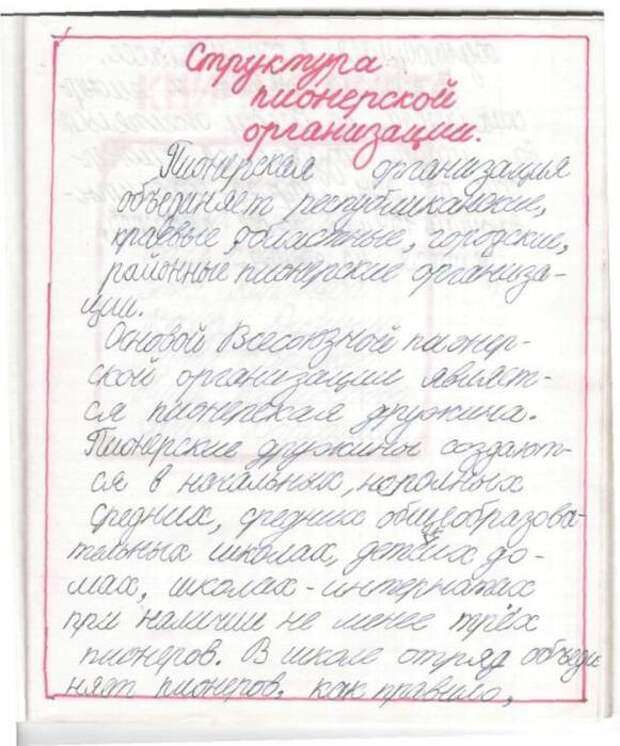 Структура
пионерской
организации.
Пионерская организация
объединяет республиканские,
краевые, областные, городские,
районные пионерские организа-
ции.
Основой Всесоюзной пионер-
ской организации являет-
ся пионерская дружина.
Пионерские дружины создают-
ся в начальных, неполных
средних, средних общеобразова-
тельных школах, детских до-
мах, школах-интернатах
при наличии не менее трёх
пионеров. В школе отряд объеди
няет пионеров, как правило,